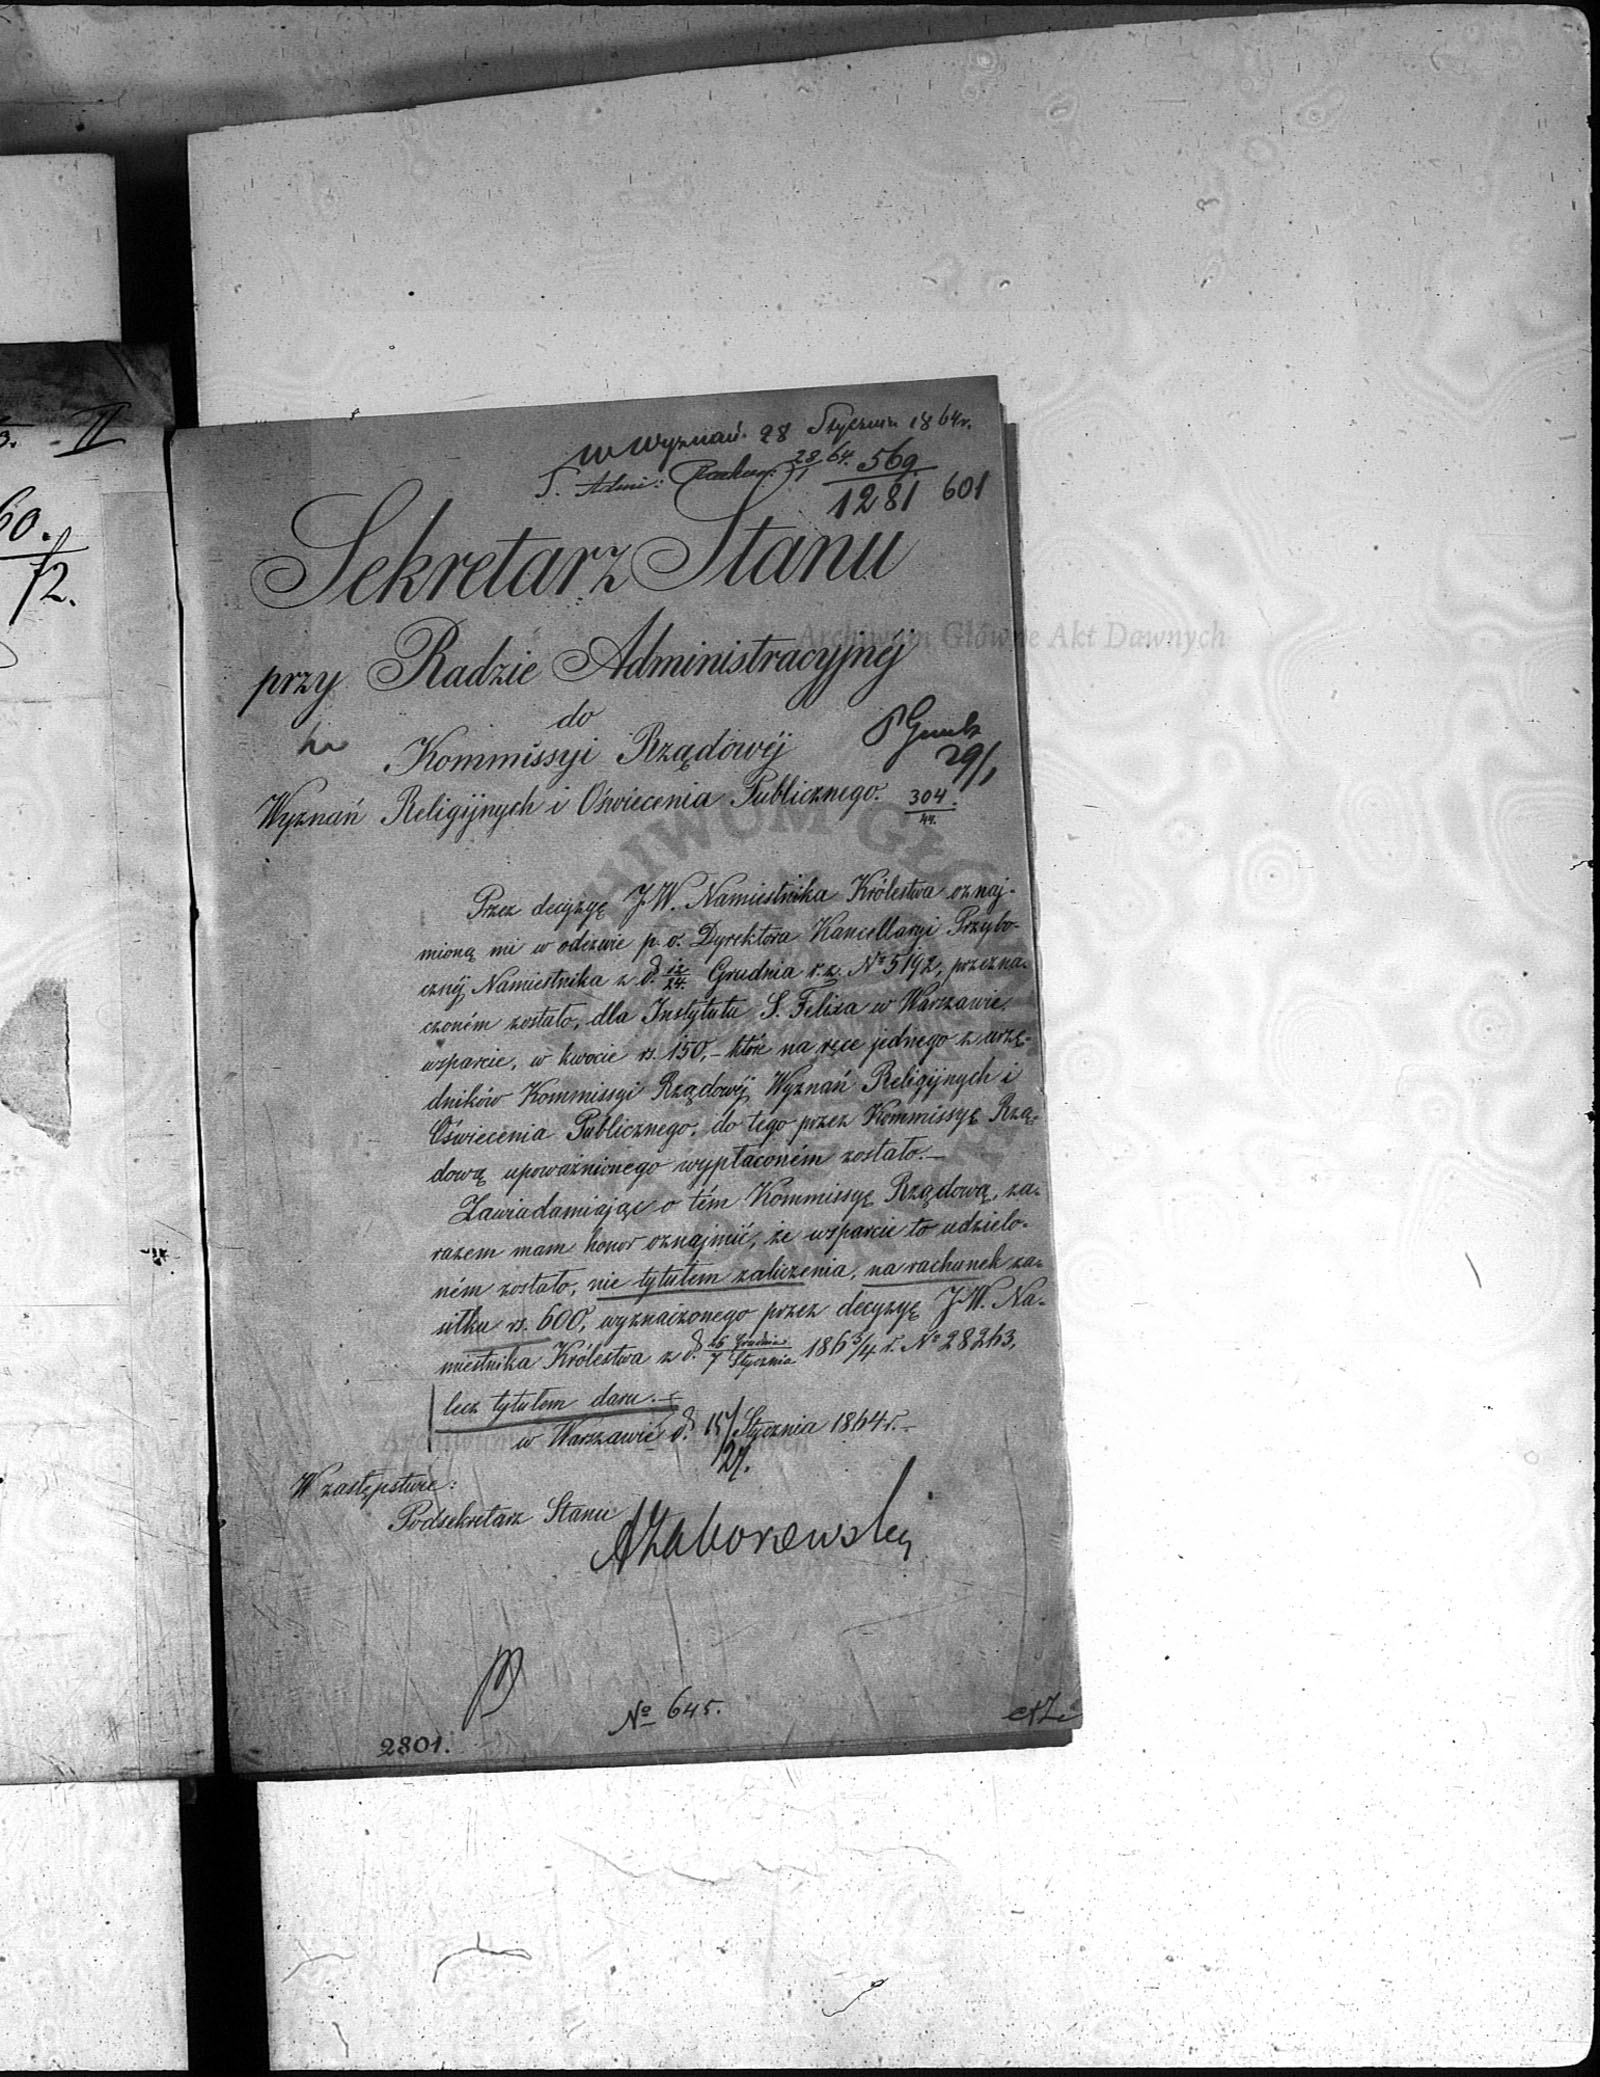 w Wyznań. 28 Stycznia 1864 r.
S. Admi: Rachun: 28/1 64. 569
1281 601
Sekretarz Stanu
przy Radzie Administracyjnéj
do
Kommissyi Rządowéj
29/1
Wyznań Religijnych i Oświecenia Publicznego. 304/44.
Przez decyzyę J.W. Namiestnika Królestwa oznaj-
mioną mi w odezwie p. o. Dyrektora Kancellaryi Przybo-
cznéj Namiestnika z d. 12/24. Grudnia r. z. No 5192, przezna-
czoném zostało, dla Instytutu S. Felixa w Warszawie,
wsparcie, w kwocie rs. 150,- które na ręce jednego z urzę-
dników Kommissyi Rządowéj Wyznań Religijnych i
Oświecenia Publicznego, do tego przez Kommissyę Rzą-
dową upoważnionego wypłaconém zostało.-
Zawiadamiając o tém Kommissyę Rządową, za-
razem mam honor oznajmić, że wsparcie to udzielo-
ném zostało, nie tytułem zaliczenia, na rachunek za-
siłku rs. 600, wyznaczonego przez decyzyę J.W. Na-
miestnika Królestwa z d. 26 Grudnia/7 Stycznia 1863/4 r. No 28263,
lecz tytułem daru.-
w Warszawie d. 15/27. Stycznia 1864 r.-
W zastępstwie:
Podsekretarz Stanu
AZaborowski
No 645.
2801.
Archiwum Główne Akt Dawnych
II
60.
72.